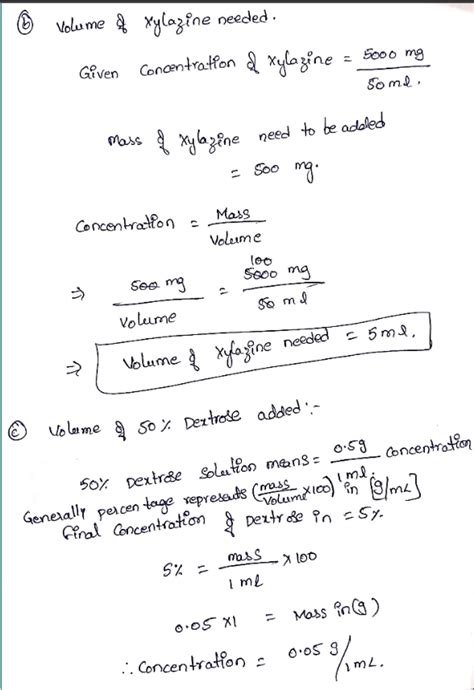 ⓑ Volume of Xylazine needed.
Given Concentration of Xylazine = 5000 mg / 50 ml.
Mass of Xylazine need to be added
= 500 mg.
Concentration = Mass / Volume
⇒ 500 mg / Volume = 100 5000 mg / 50 ml
⇒ Volume of Xylazine needed = 5 ml.
ⓒ Volume of 50% Dextrose added :-
50% Dextrose solution means = 0.5g / 1 ml. Concentration
Generally percentage represents (mass / volume × 100) in [g/mL]
Final Concentration of Dextrose in = 5%
5% = mass / 1 ml × 100
0.05 × 1 = Mass in (g)
∴ Concentration = 0.05 g / 1mL.